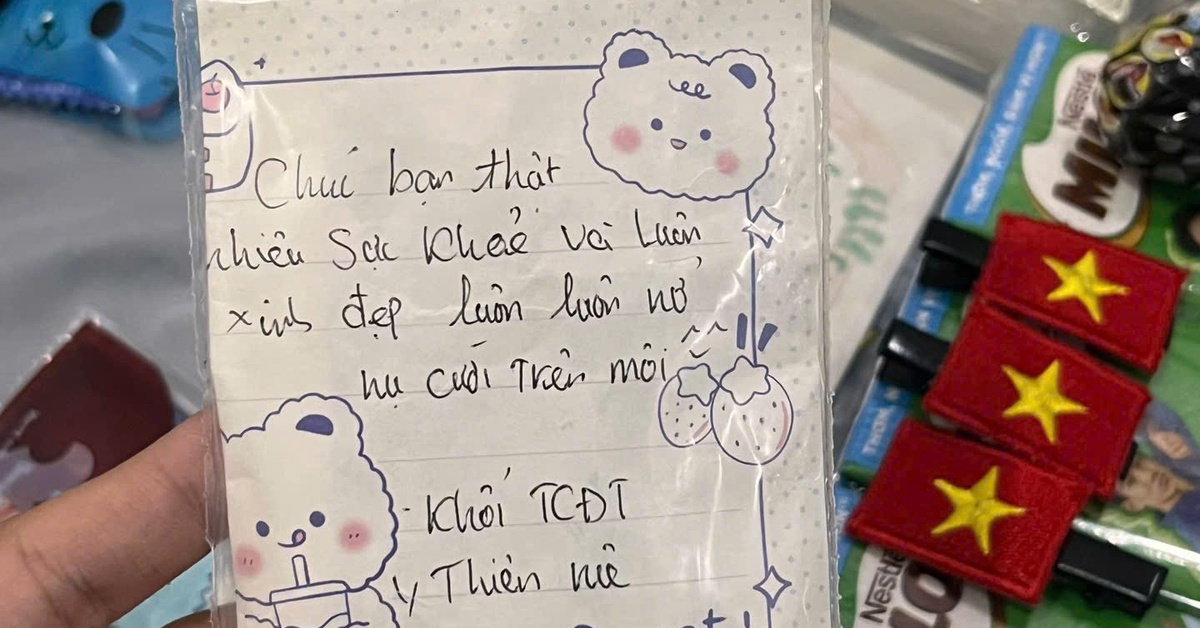 Chúc bạn thật
nhiều Sức Khoẻ Và Luôn
xinh đẹp luôn luôn nở
nụ cười Trên môi ^^
- Khối TCĐT
Thiện
Nestlé
Nestlé